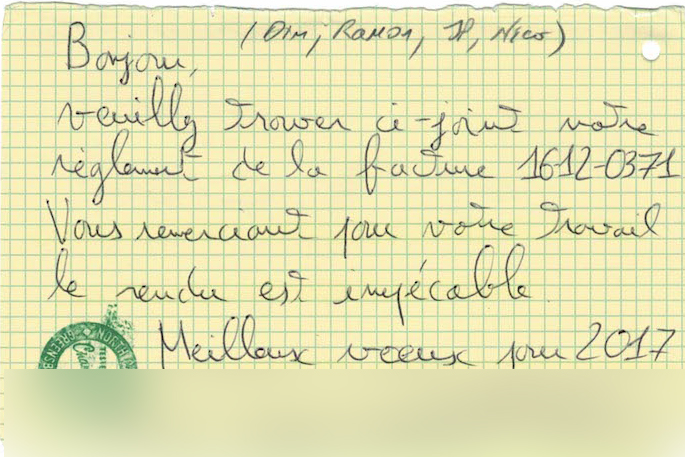 (Dim, Ramon, JP, Nico)
Bonjour,
veuillez trouver ci-joint votre
règlement de la facture 1612-0371
Vous remerciant pour votre travail
le rendu est impécable.
Meilleux voeux pour 2017